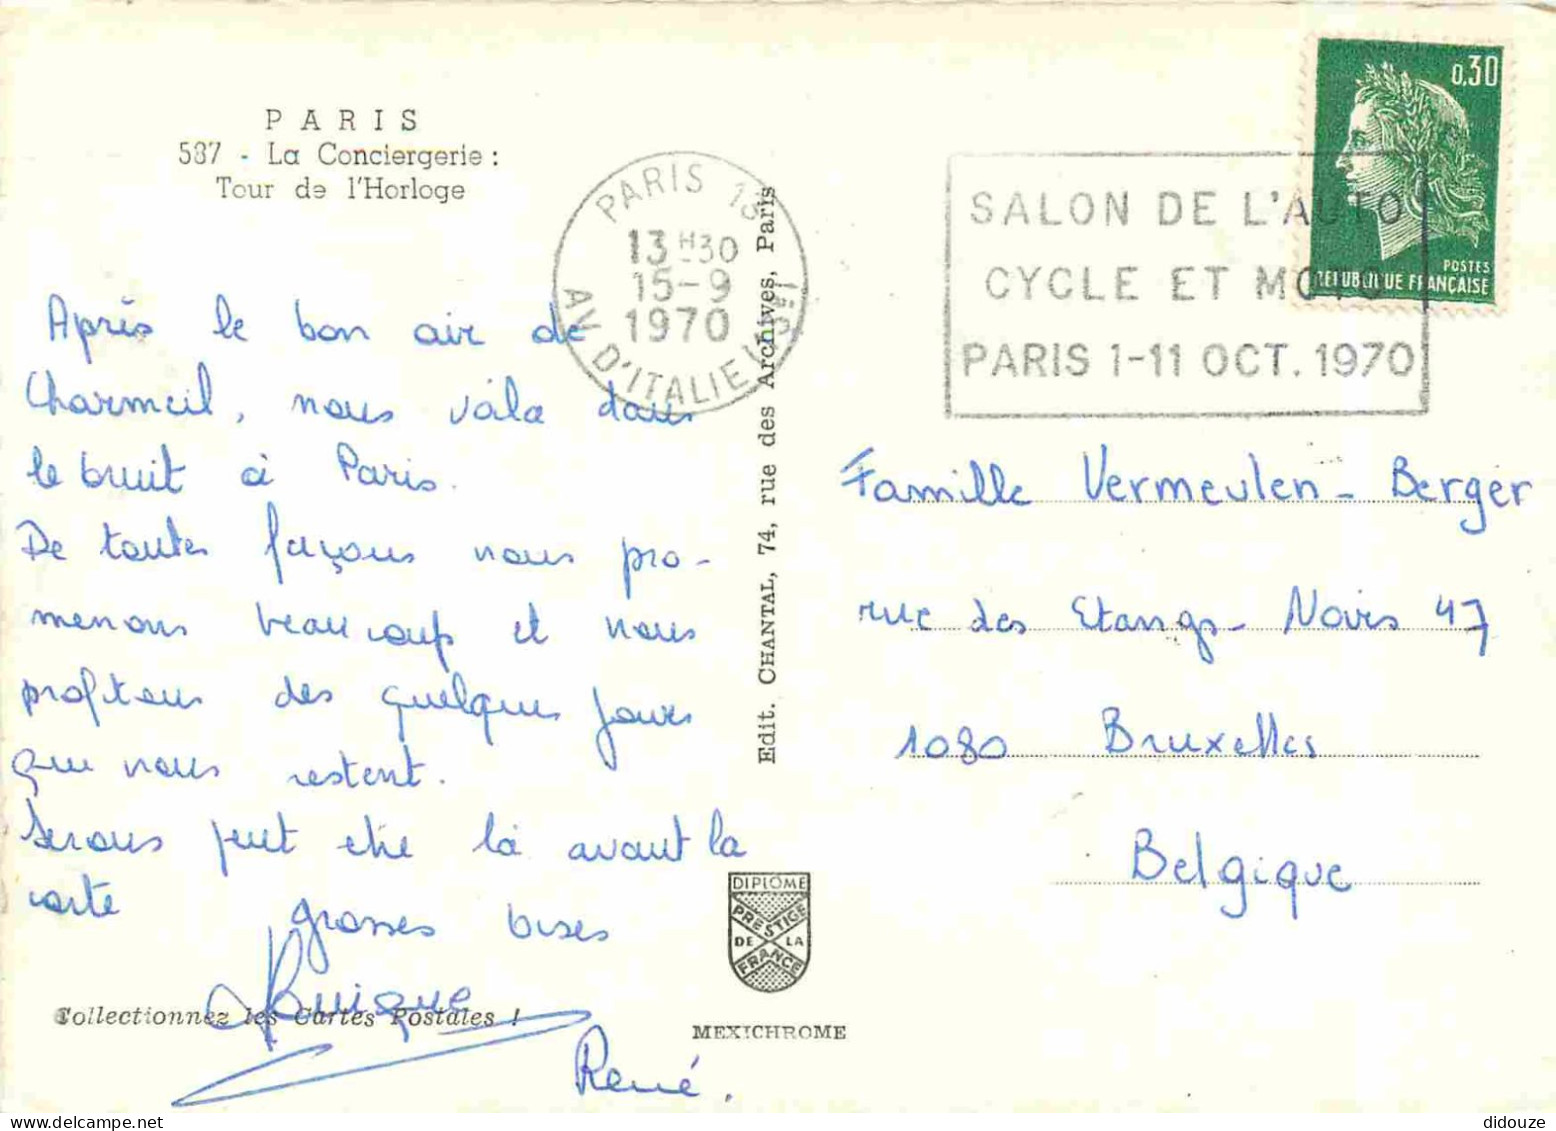 PARIS
587 - La Conciergerie :
Tour de l'Horloge
PARIS 13
13H30
15-9
1970
AV. D'ITALIE
SALON DE L'AUTO
CYCLE ET MOTO
PARIS 1-11 OCT. 1970
0,30
POSTES
REPUBLIQUE FRANÇAISE
Après le bon air de
Charmeil, nous voila dans
le bruit à Paris.
De toutes façons nous pro-
menons beaucoup et nous
profitons des quelques jours
que nous restent.
Serons peut etre là avant la
carte
grosses bises
René.
Edit. CHANTAL, 74, rue des Archives, Paris
Famille Vermeulen - Berger
rue des Etangs - Noirs 47
1080 Bruxelles
Belgique
DIPLOME
PRESTIGE
DE LA
FRANCE
Collectionnez les Cartes Postales !
MEXICHROME
didouze